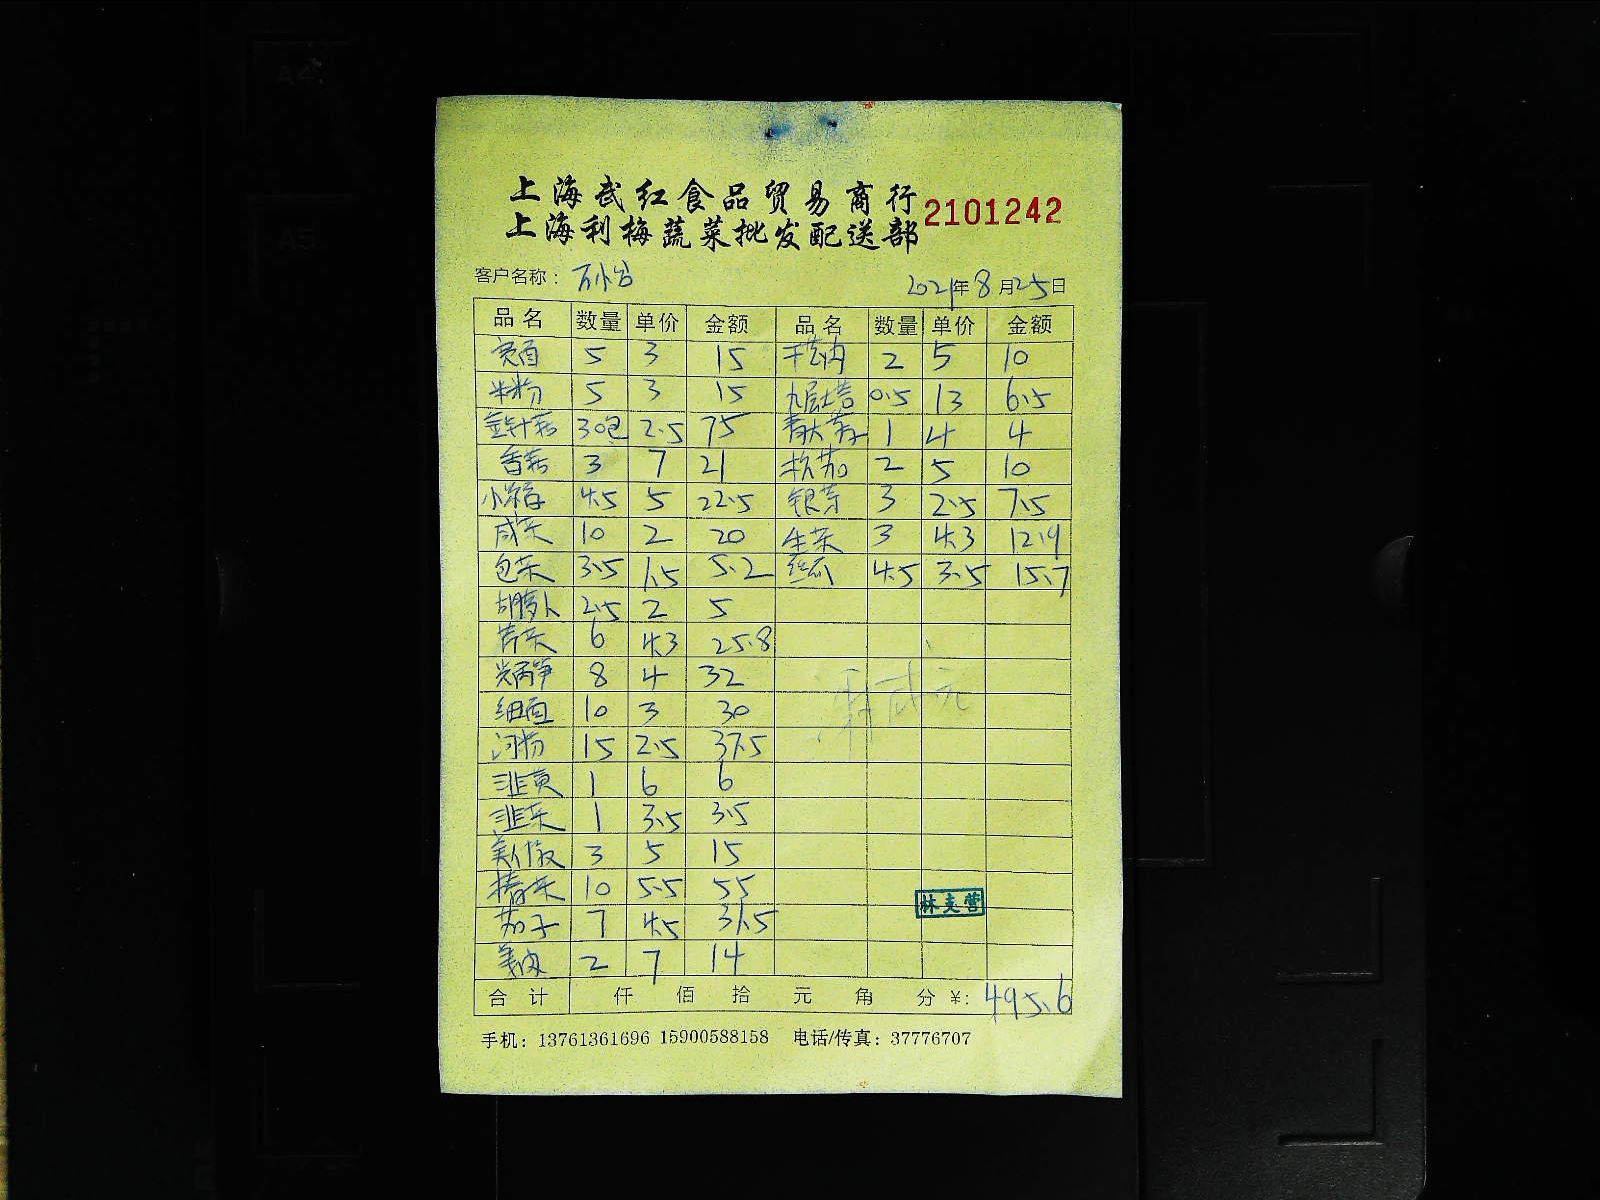 A4
A5
上海武红食品贸易商行
上海利梅蔬菜批发配送部
2101242
客户名称:
2021年8月25日
品名 数量 单价 金额 品名 数量 单价 金额
宽面 5 3 15 千张肉 2 5 10
米粉 5 3 15 九层塔 0.5 13 6.5
金针菇 30包 2.5 75 1 4 4
香菇 3 7 21 2 5 10
4.5 5 22.5 银芽 3 2.5 7.5
咸菜 10 2 20 生菜 3 4.3 12.9
包菜 3.5 1.5 5.2 丝瓜 4.5 3.5 15.7
胡萝卜 2.5 2 5
芹菜 6 4.3 25.8
8 4 32
细面 10 3 30
河粉 15 2.5 37.5
韭黄 1 6 6
韭菜 1 3.5 3.5
美人椒 3 5 15
10 5.5 55
茄子 7 4.5 31.5
2 7 14
合计 仟 佰 拾 元 角 分 ¥: 495.6
手机: 13761361696 15900588158 电话/传真: 37776707